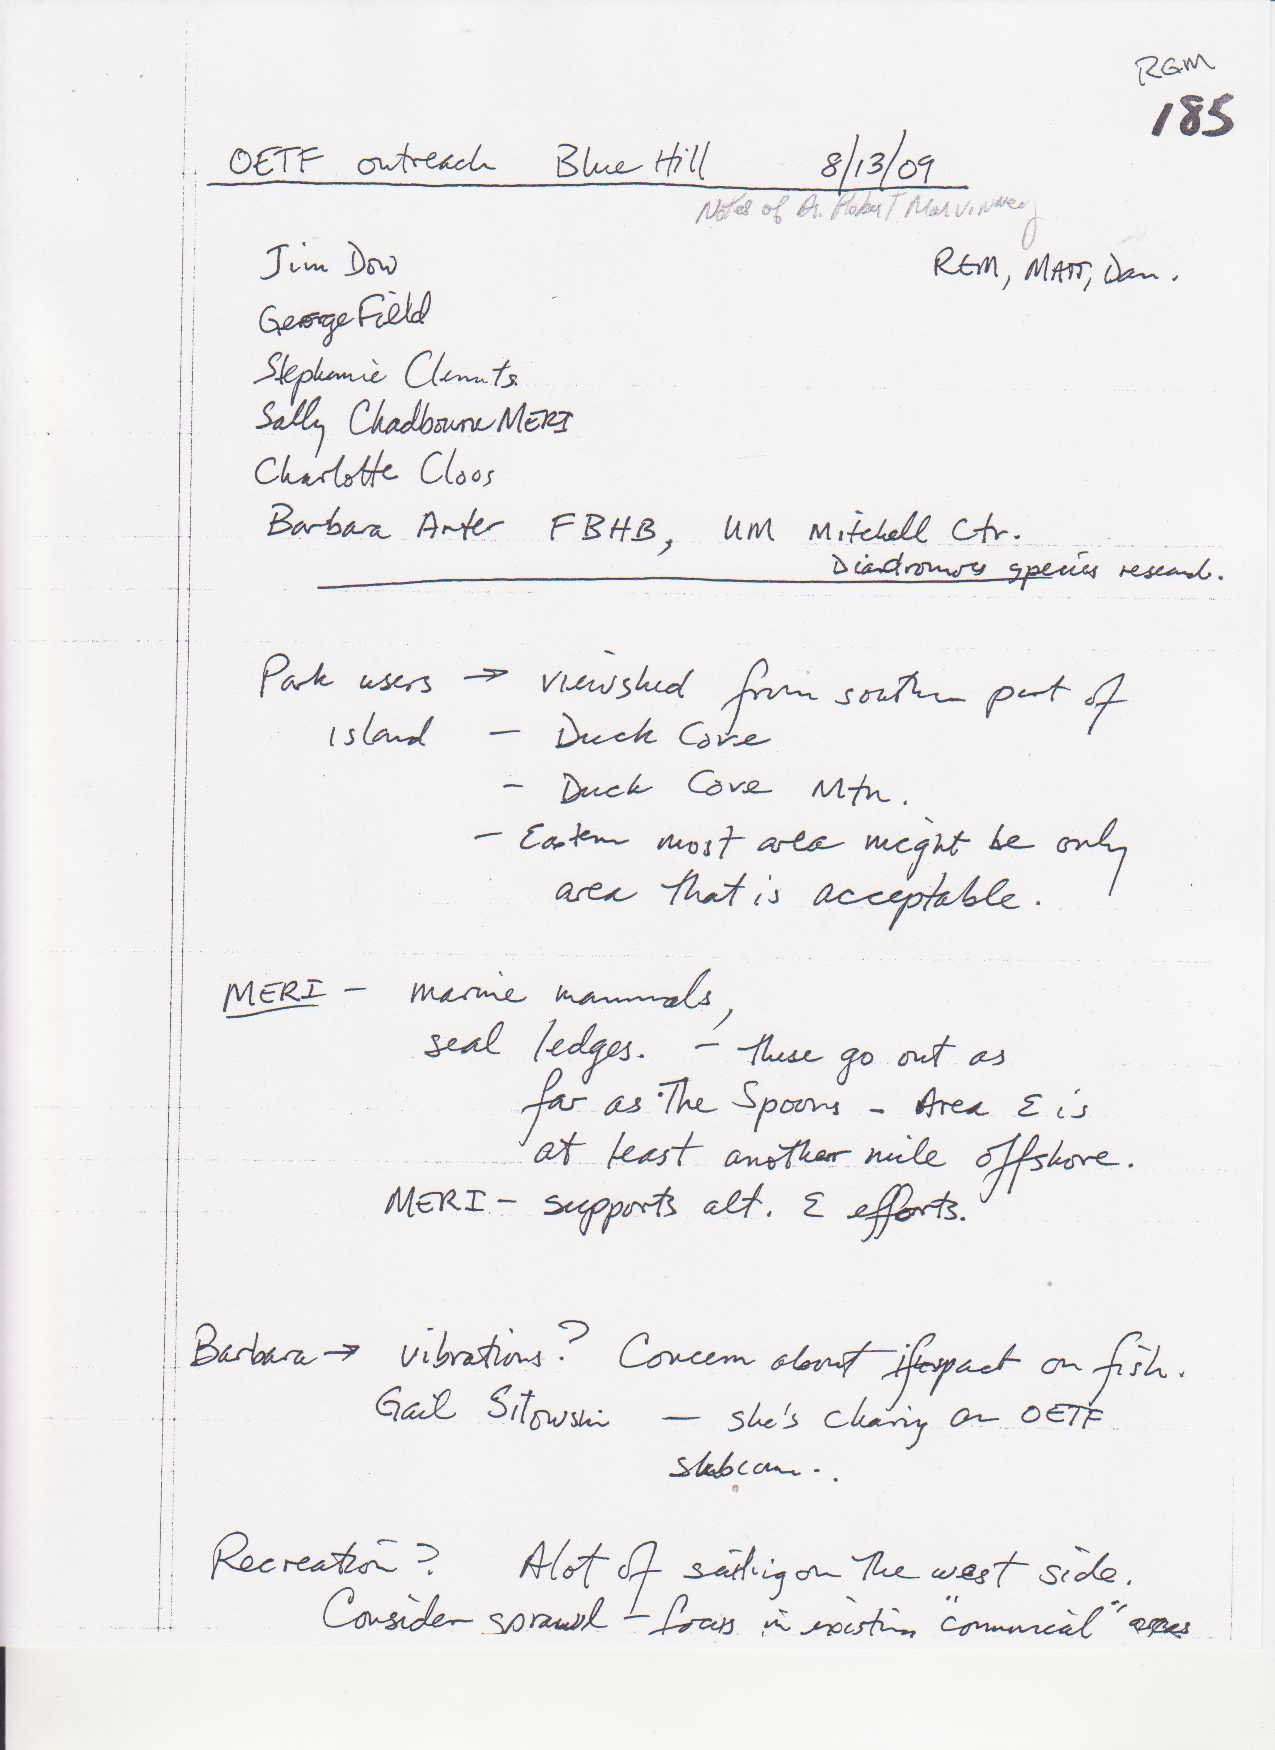 RGM
185
OETF outreach Blue Hill 8/13/09
Notes of Dr. Robert Marvinney
Jim Dow
REM, MATT, Dan.
George Field
Stephanie Clemnts
Sally Chadbourne MERI
Charlotte Cloos
Barbara Arter FBHB, UM Mitchell Ctr.
Diandromous species research.
Park users → viewshed from southern part of
island - Duck Cove
- Duck Cove Mtn.
- Eastern most area might be only
area that is acceptable.
MERI - marine mammals,
seal ledges. - these go out as
far as The Spoons - Area E is
at least another mile offshore.
MERI - supports alt. E efforts.
Barbara → vibrations? Concern about impact on fish.
Gail - she's chairing an OETF
subcom..
Recreation? Alot of sailing on the west side.
Consider sprawl - focus in existing "commercial" areas